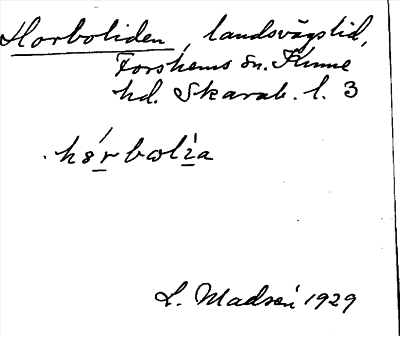 Horboliden, landsvägslid,
Forshems sn. Kinne
hd. Skarab. l. 3
L. Madsén 1929